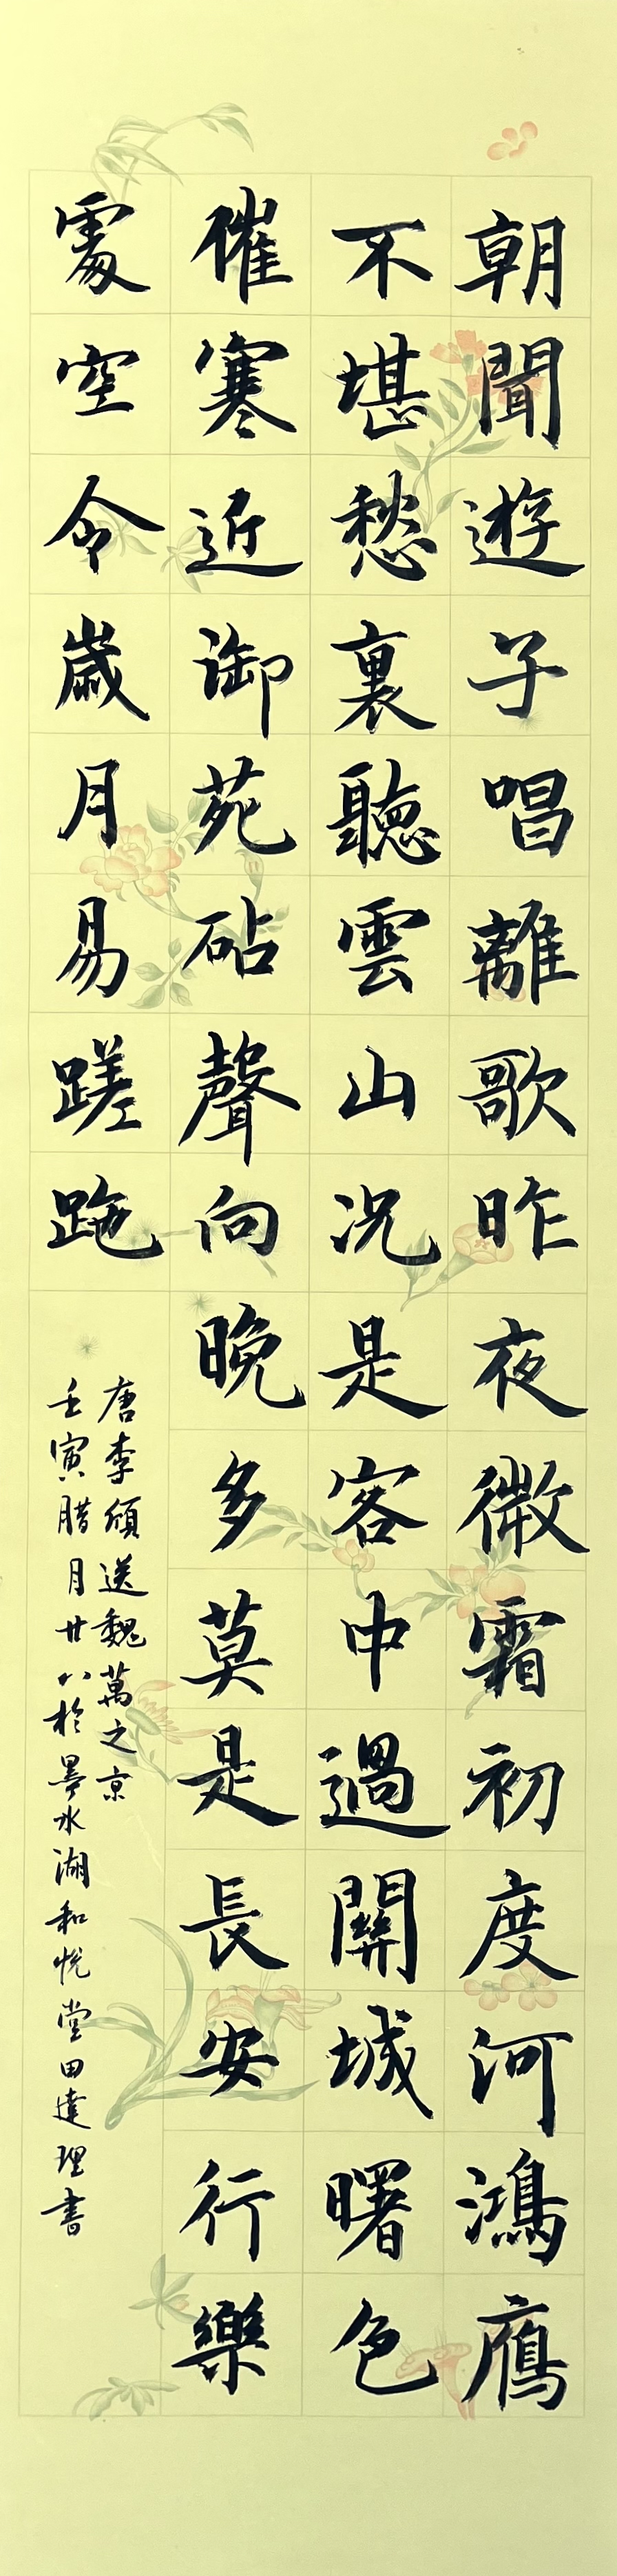 朝聞遊子唱離歌昨夜微霜初度河鴻鴈
不堪愁裏聽雲山況是客中過關城曙色
催寒近御苑砧聲向晚多莫是長安行樂
處空令歲月易蹉跎
唐李頎送魏萬之京
壬寅腊月廿八於墨水湖和悅堂田達理書